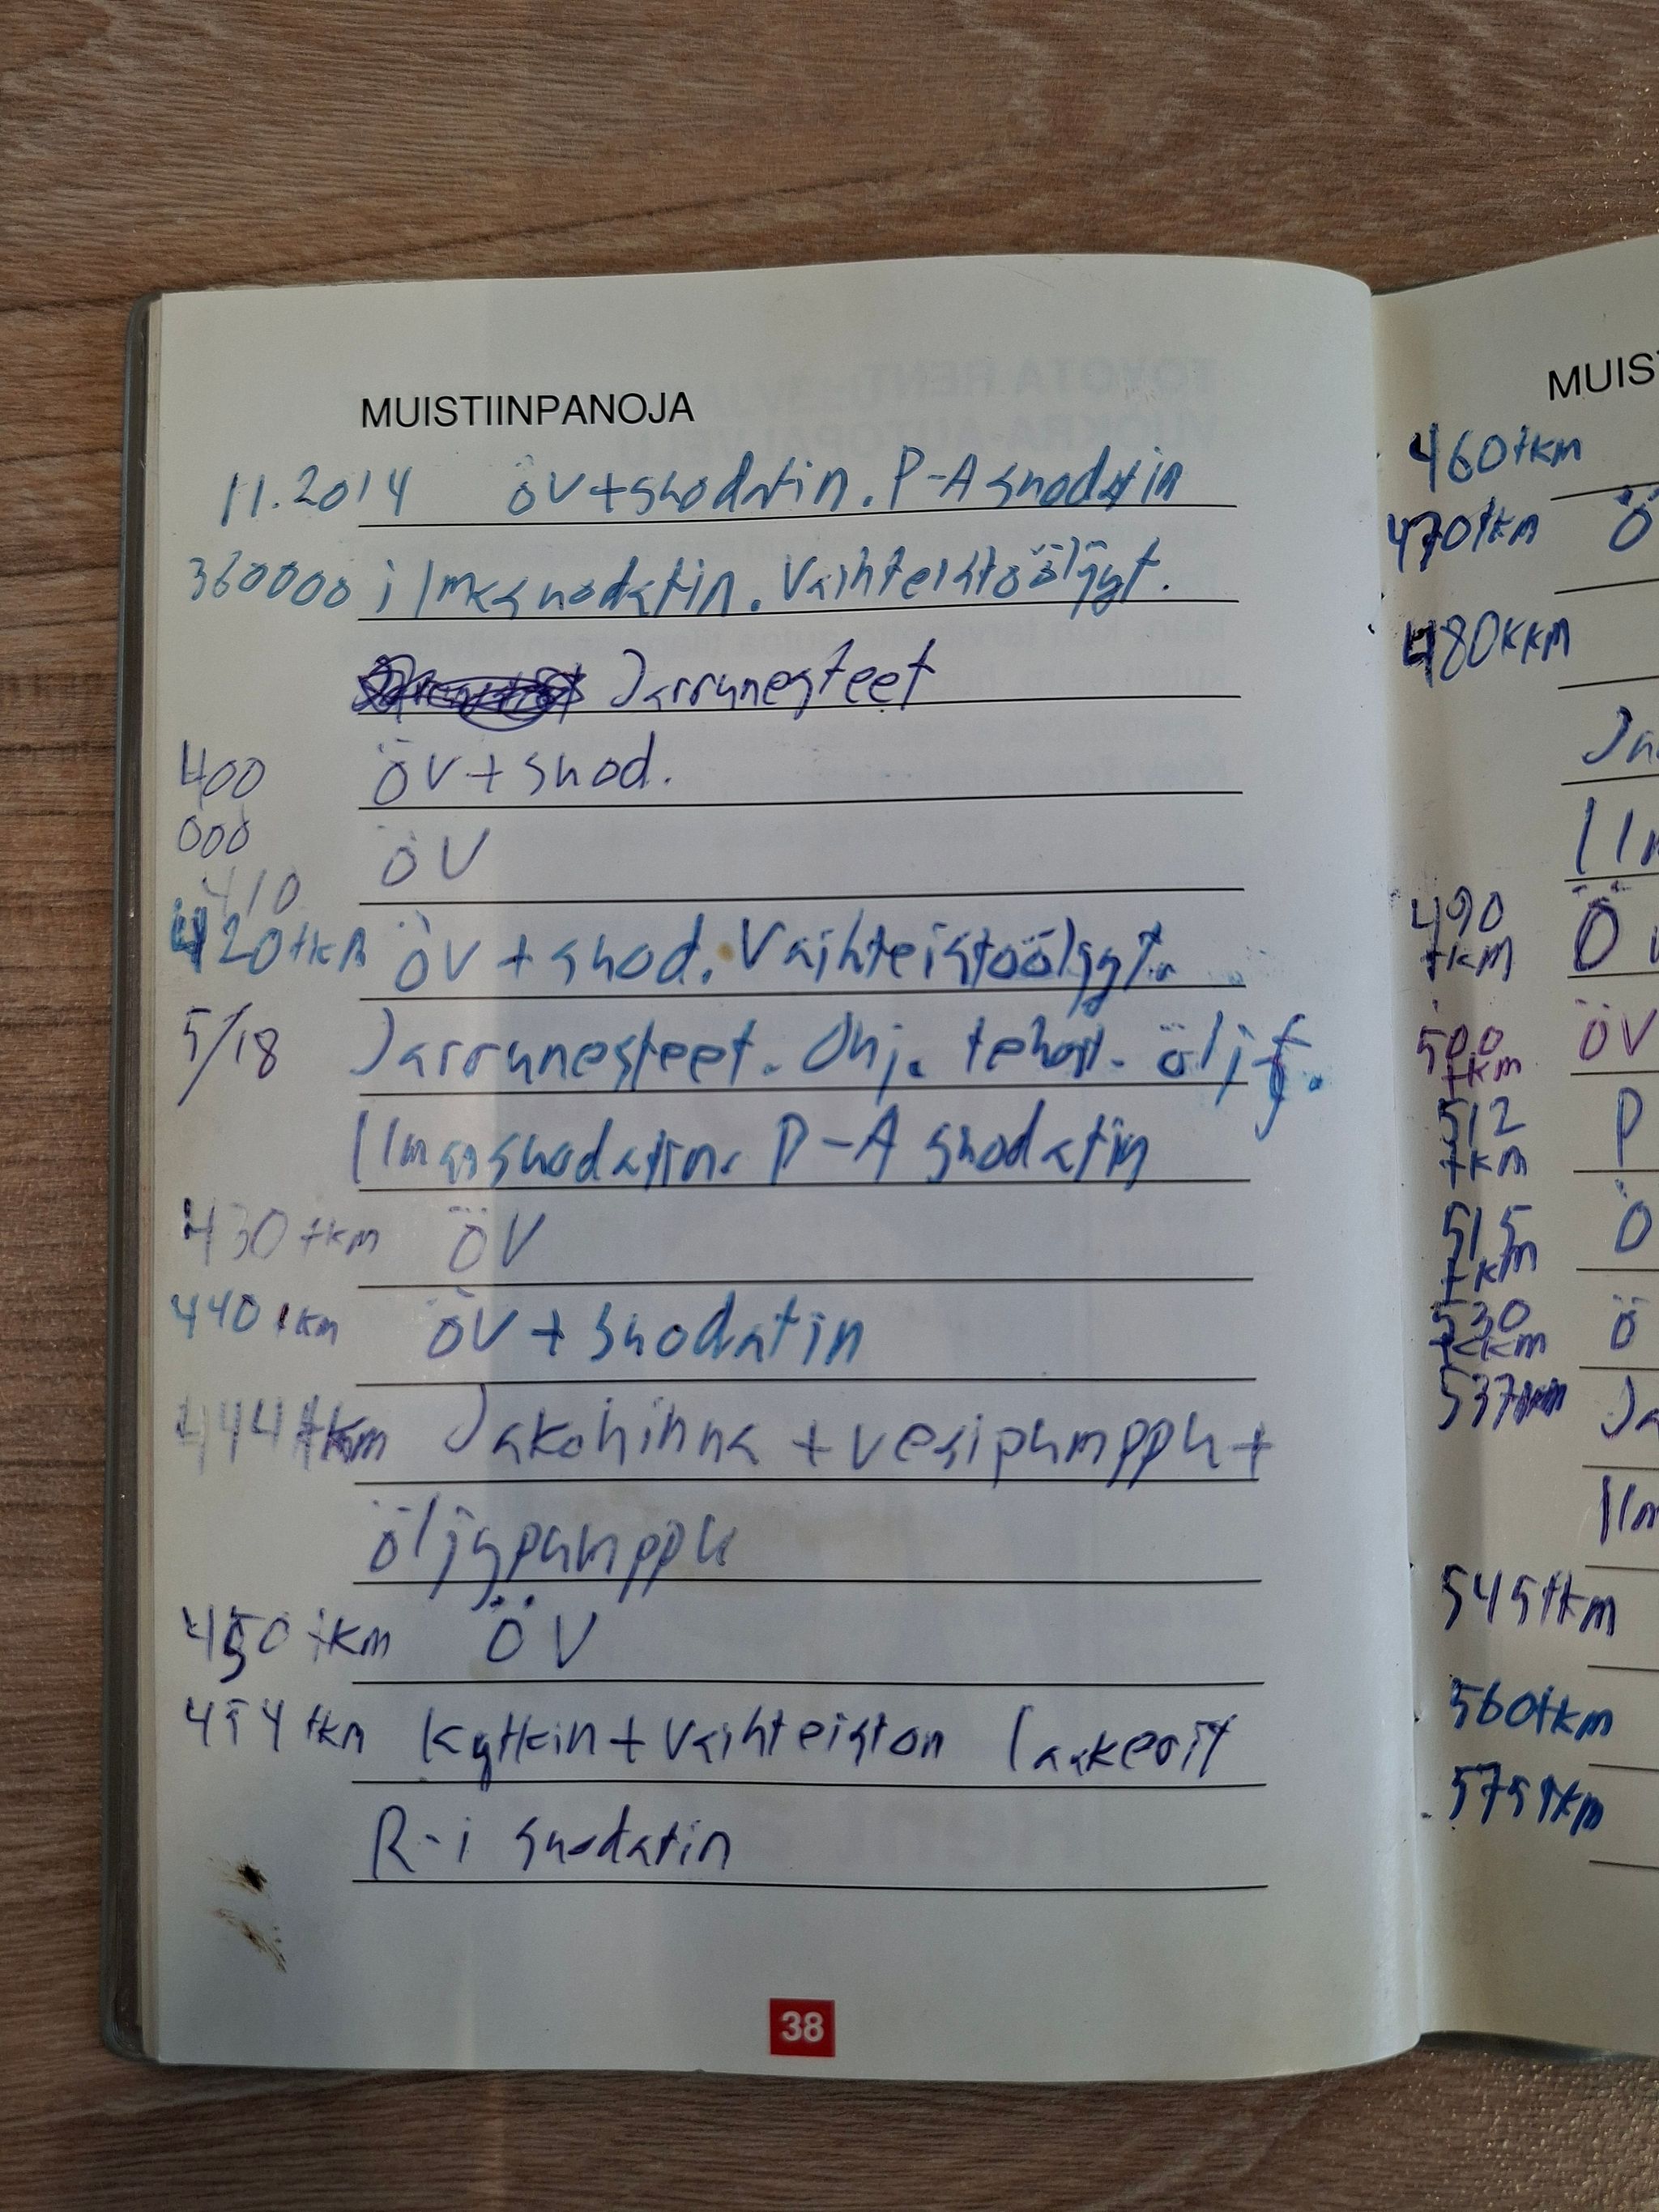 MUISTIINPANOJA
11.2014 ÖV+suodatin. P-A suodatin
360000 ilmasuodatin. Vaihteistoöljyt.
Jarrunesteet
400 ÖV + suod.
000
ÖV
410
420tkm ÖV + suod. Vaihteistoöljyt.
5/18 Jarrunesteet. Ohj. tehost. öljy.
Ilmansuodatin. P-A suodatin
430 tkm ÖV
440 tkm ÖV + suodatin
444 tkm Jakohihna + vesipumppu +
öljypumppu
450 tkm ÖV
454 tkm Kytkin + Vaihteiston laakerit
R-i suodatin
38
MUIST
460tkm
470tkm Ö
480kkm
Ja
Ilm
490 Ö v
tkm
500 ÖV
tkm
512 P
tkm
515 Ö
tkm
530 ö
tkm
537tkm Ja
Ilm
545tkm
560tkm
575tkm